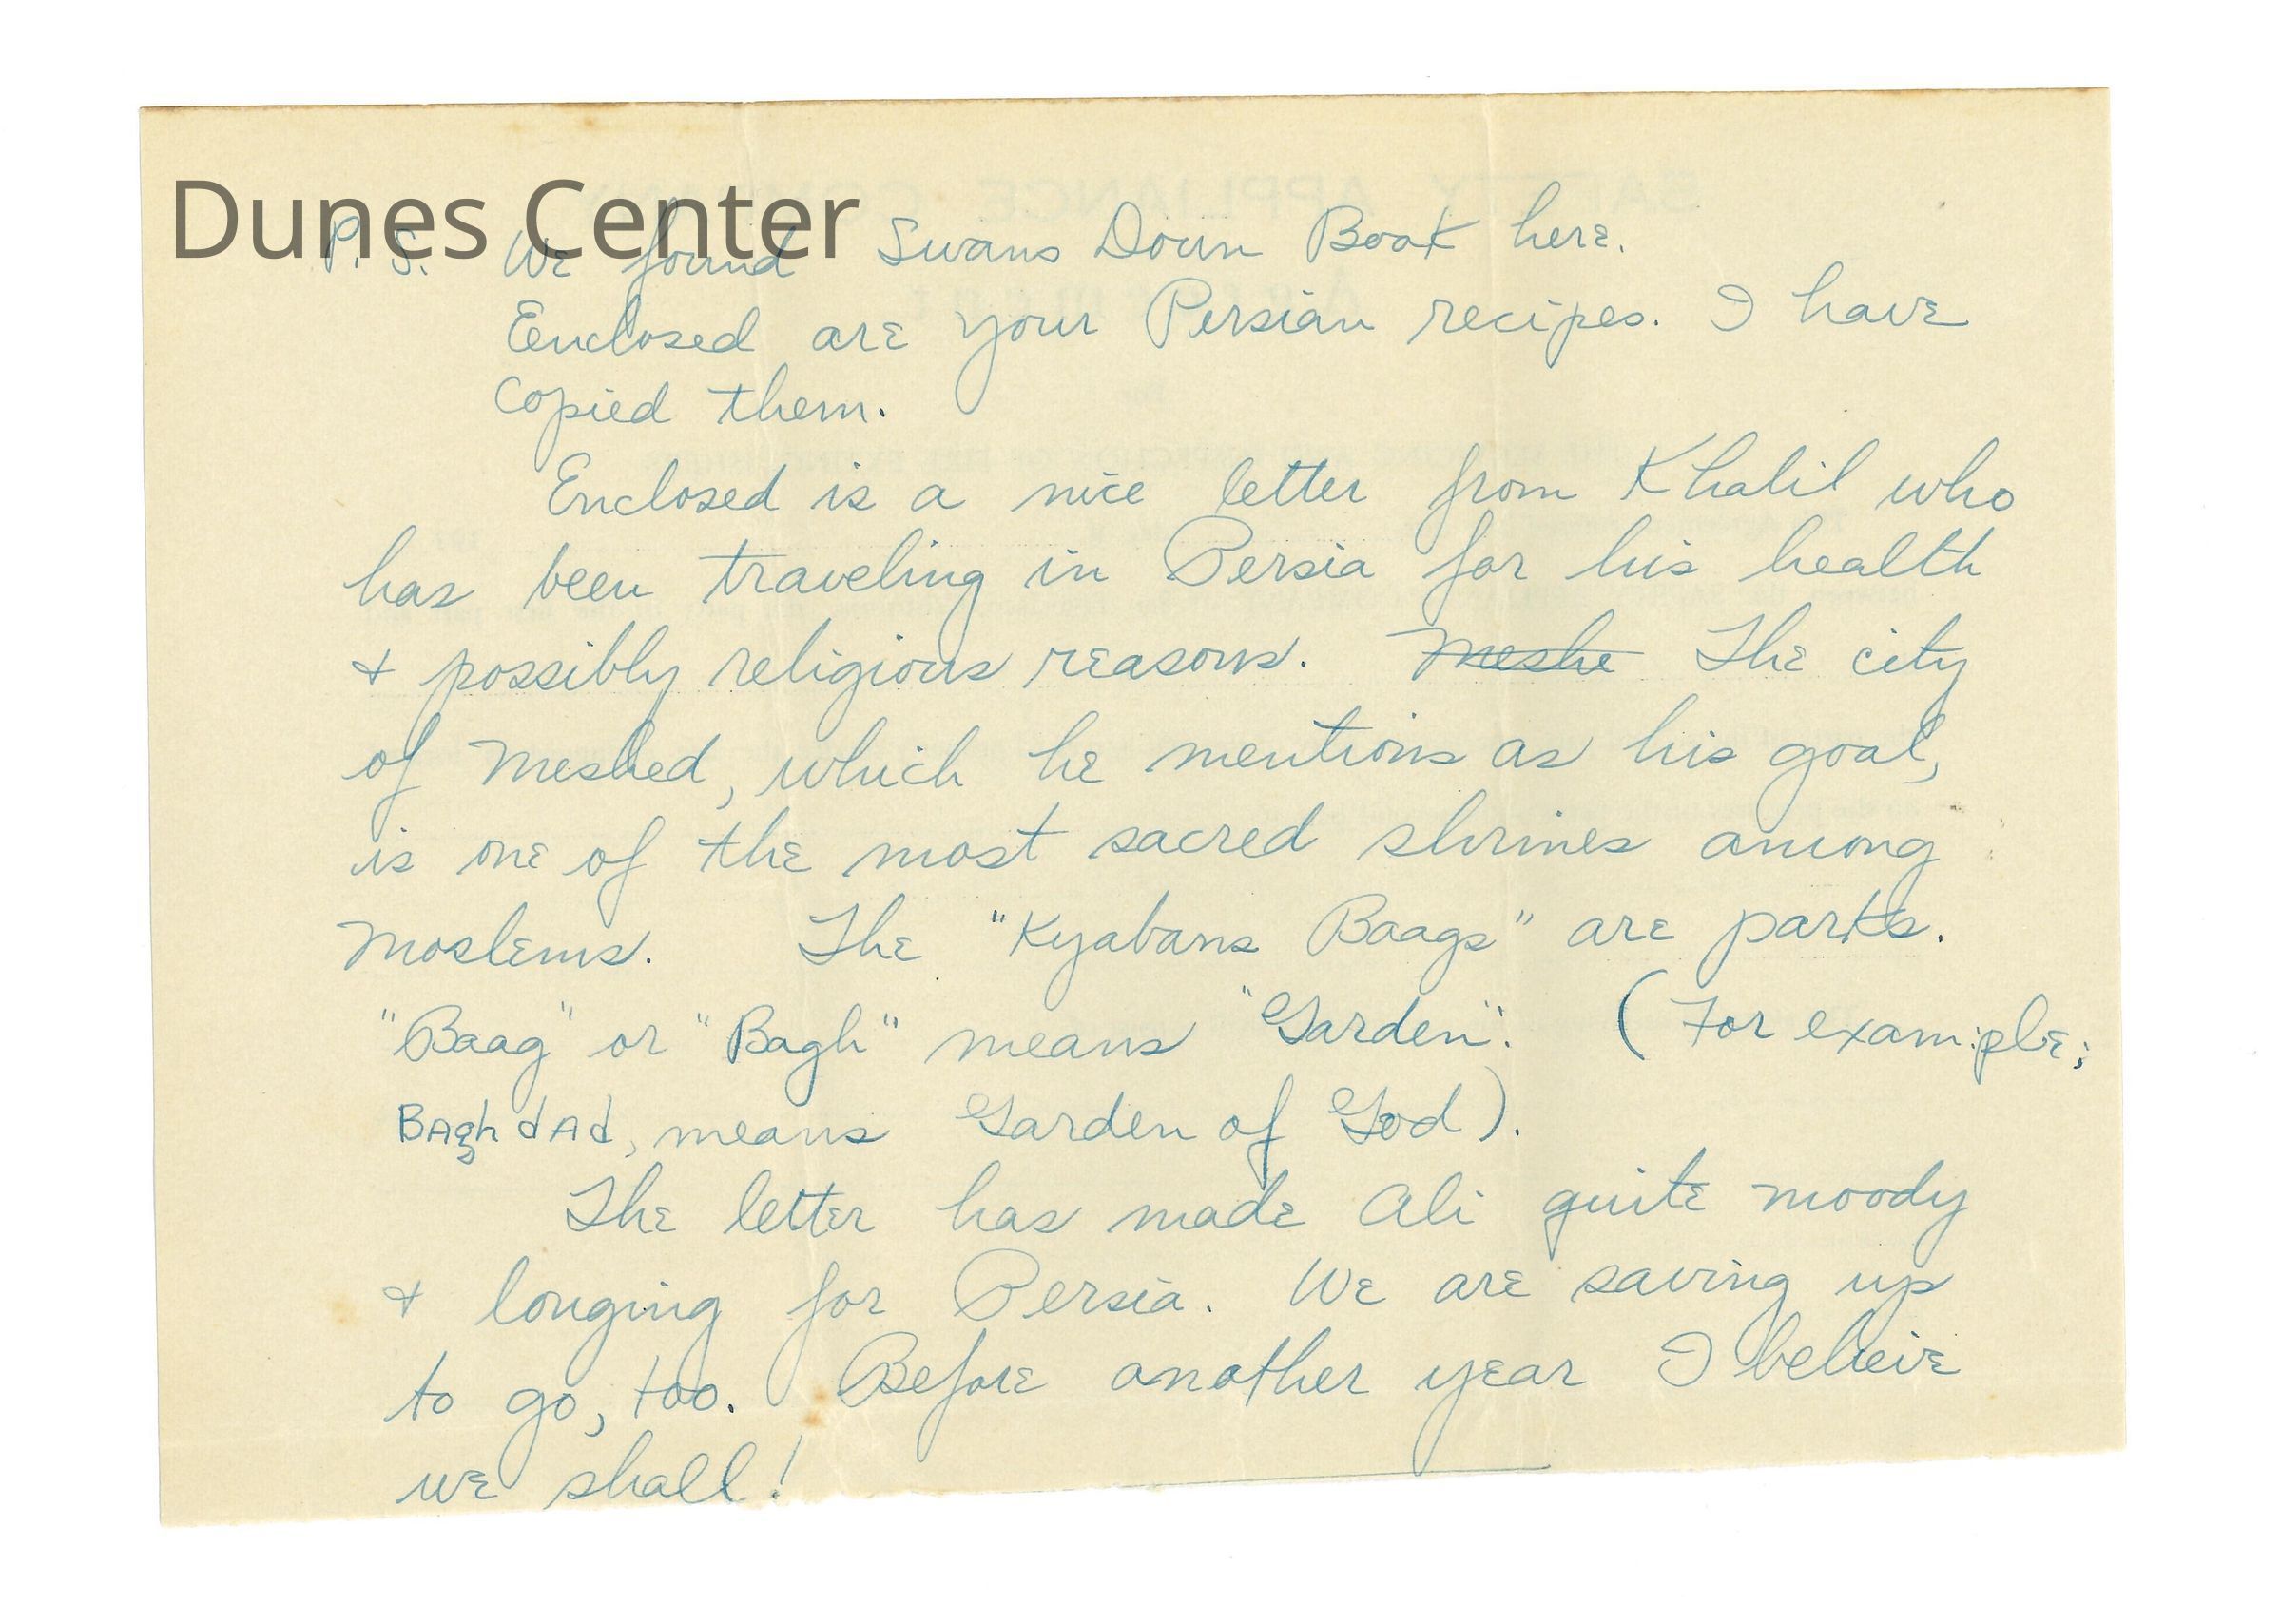 Dunes Center
P. S. We found Swans Down Book here.
Enclosed are your Persian recipes. I have
copied them.
Enclosed is a nice letter from Khalil who
has been traveling in Persia for his health
& possibly religious reasons. Meshe The city
of Meshed, which he mentions as his goal,
is one of the most sacred shrines among
Moslems. The "Kyabans Baags" are parks.
"Baag" or "Bagh" means "Garden". (For example;
BAghdAd, means Garden of God).
The letter has made Ali quite moody
& longing for Persia. We are saving up
to go, too. Before another year I believe
we shall!